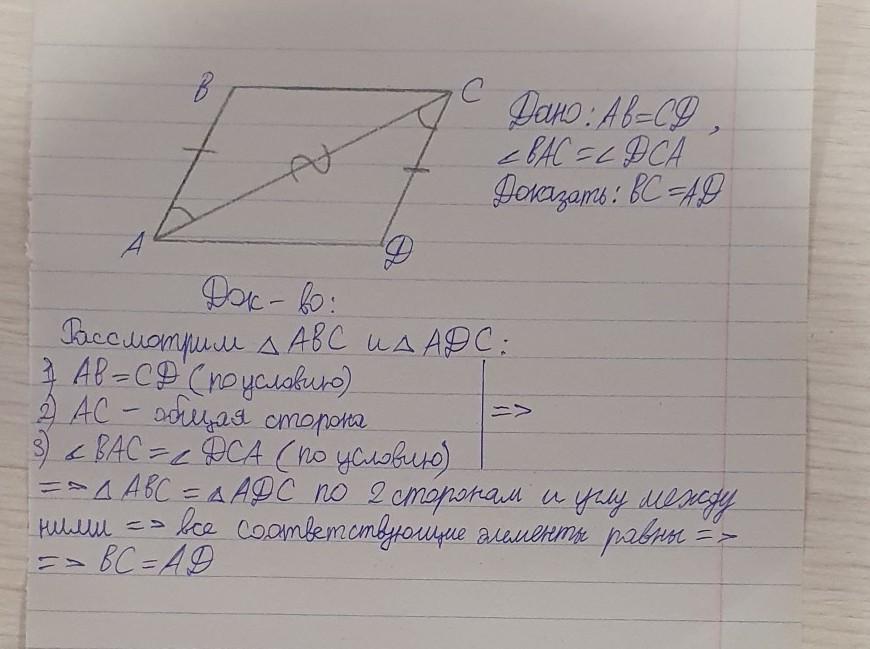 B
C
A
D
Дано: AB=CD,
∠BAC=∠DCA
Доказать: BC=AD
Док-во:
Рассмотрим △ABC и △ADC:
1) AB=CD (по условию)
2) AC - общая сторона
=>
3) ∠BAC=∠DCA (по условию)
=> △ABC=△ADC по 2 сторонам и углу между
ними => все соответствующие элементы равны =>
=> BC=AD